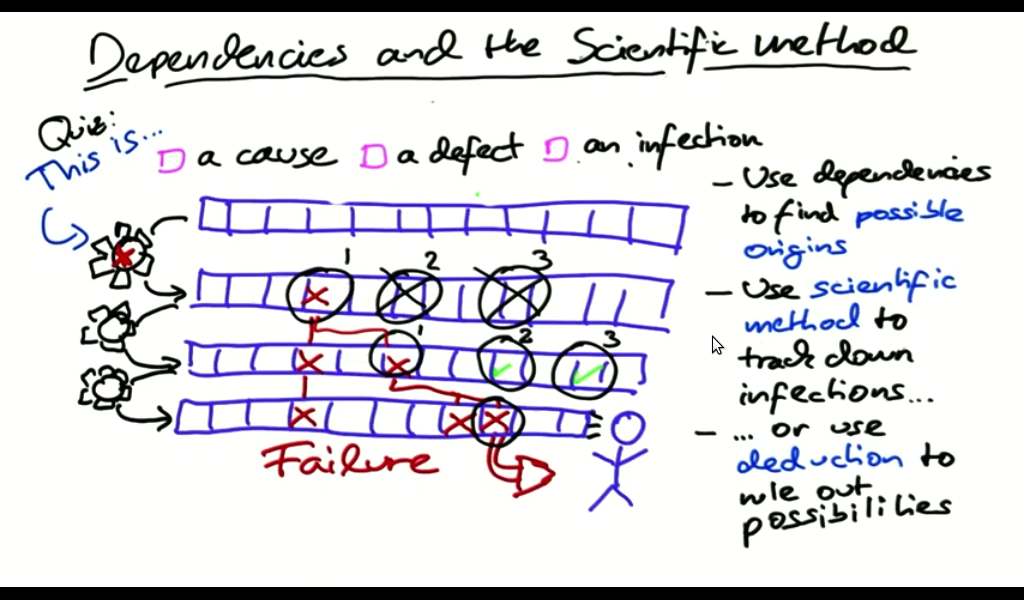 Dependencies and the Scientific method
Quiz:
This is...
a cause
a defect
an infection
1 2 3
1 2 3
Failure
- Use dependencies
to find possible
origins
- Use scientific
method to
track down
infections...
- ... or use
deduction to
rule out
possibilities